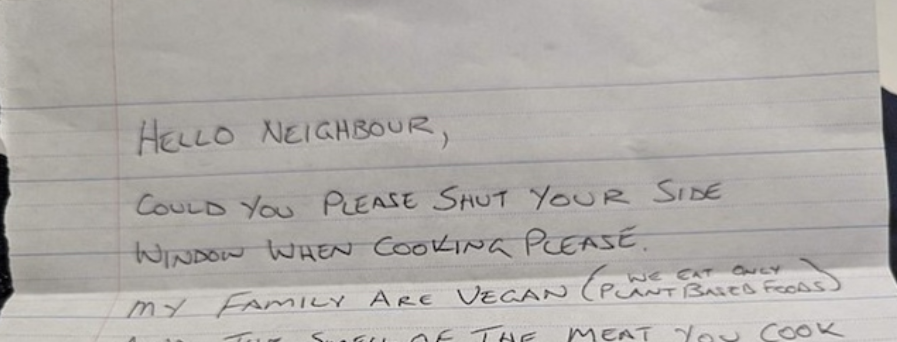 HELLO NEIGHBOUR,
COULD YOU PLEASE SHUT YOUR SIDE
WINDOW WHEN COOKING PLEASE.
MY FAMILY ARE VEGAN (WE EAT ONLY PLANT BASED FOODS)
THE SMELL OF THE MEAT YOU COOK